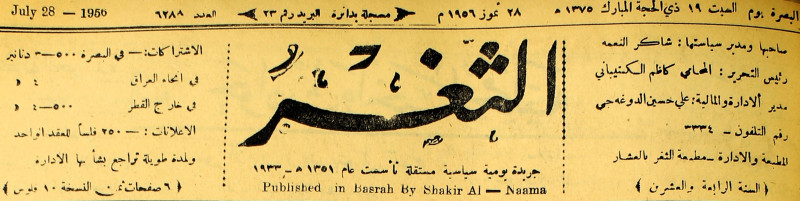 البصرة يوم السبت ١٩ ذي الحجة المبارك ١٣٧٥ هـ ٢٨ تموز ١٩٥٦ م مسجلة بدائرة البريد رقم ٢٣ العدد ٦٢٨٨ July 28 — 1956
صاحبها ومدير سياستها: شاكر النعمه
رئيس التحرير: المحامي كاظم الكشتيباني
مدير الادارة والمالية: علي حسين الدوغه جي
رقم التلفون - ٣٣٣٤
المطبعة والادارة - مطبعة الثغر بالعشار
( السنة الرابعة والعشرن )
الثغر
جريدة يومية سياسية مستقلة تأسست عام ١٣٥١ هـ - ١٩٣٣
Published in Basrah By Shakir Al — Naama
الاشتراكات: — في البصرة ٥٠٠-٣ دنانير
في انحاء العراق ٤ »
في خارج القطر ٥٠٠-٤ »
الاعلانات: — ٢٥٠ فلساً للعقد الواحد
ولمدة طويلة تراجع بشأنها الادارة
( ٦ صفحات ثمن النسخة ١٠ فلوس )